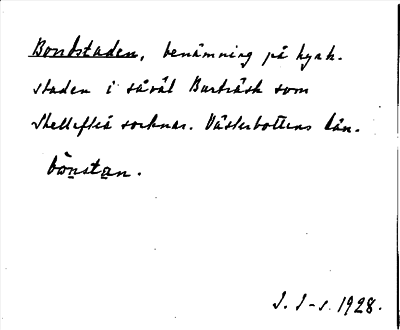 Bondstaden, benämning på kyrk-
staden i såväl Burträsk som
Skellefteå socknar. Västerbottens län.
bònstan.
J. J-s. 1928.